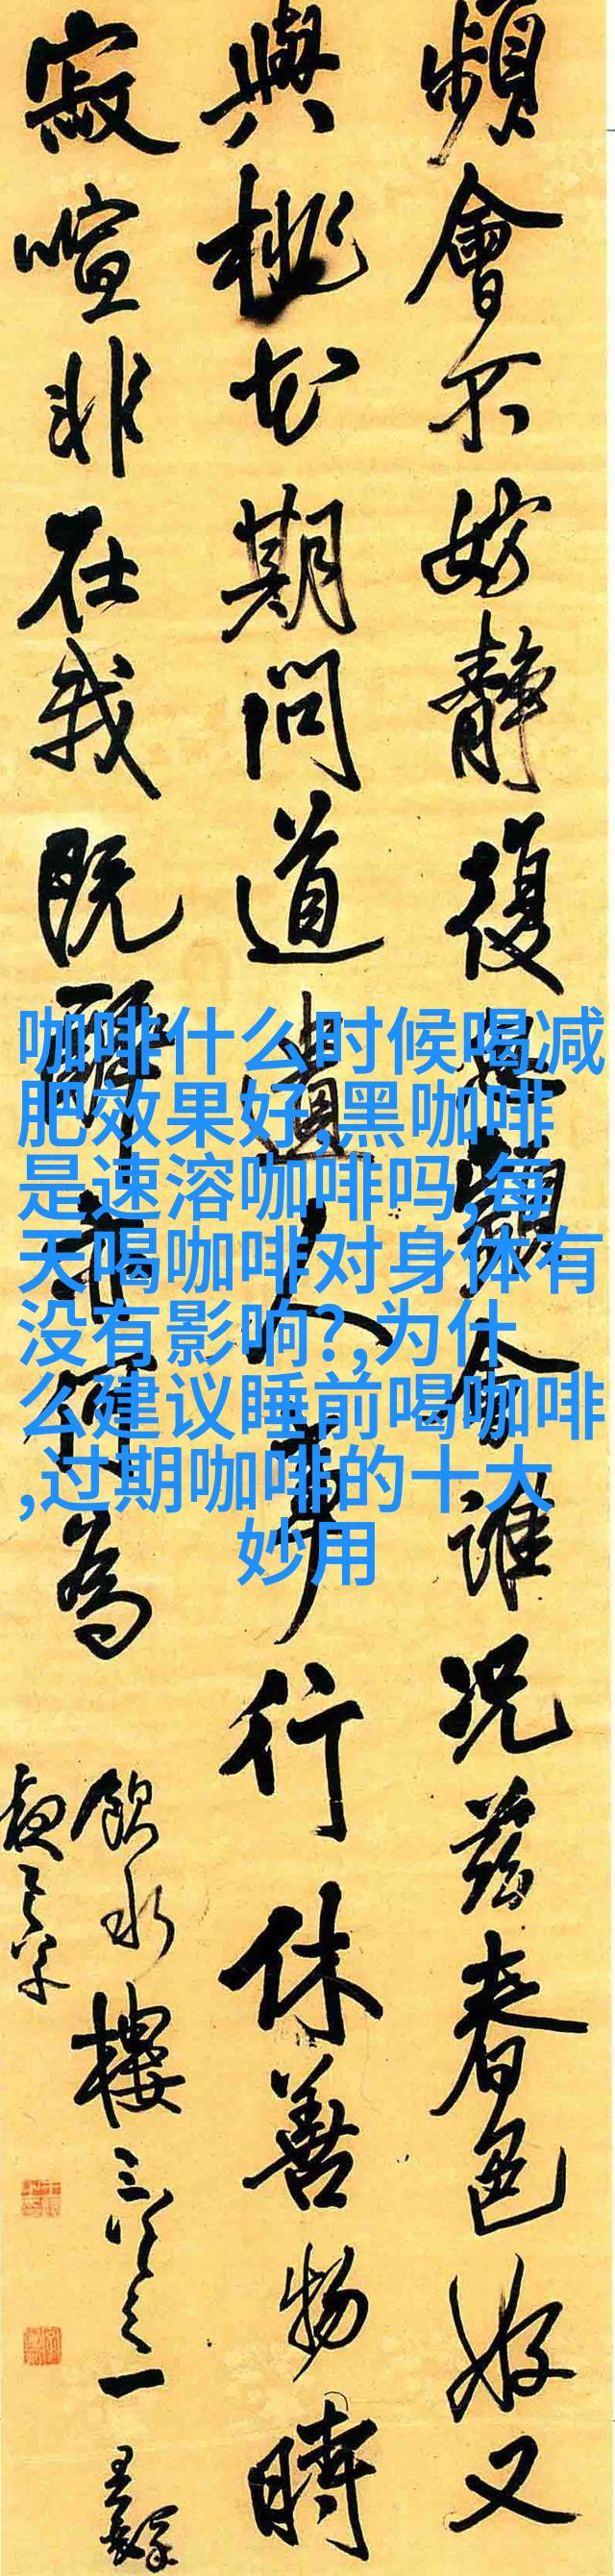 頻會不妨静復
會誰況兹春色好又
與桃花期問道遺人事行休善物時
寂喧非在我既醉亦何為
飲水樓
三
之一
咖啡什么时候喝减
肥效果好,黑咖啡
是速溶咖啡吗,每
天喝咖啡对身体有
没有影响?,为什
么建议睡前喝咖啡
,过期咖啡的十大
妙用